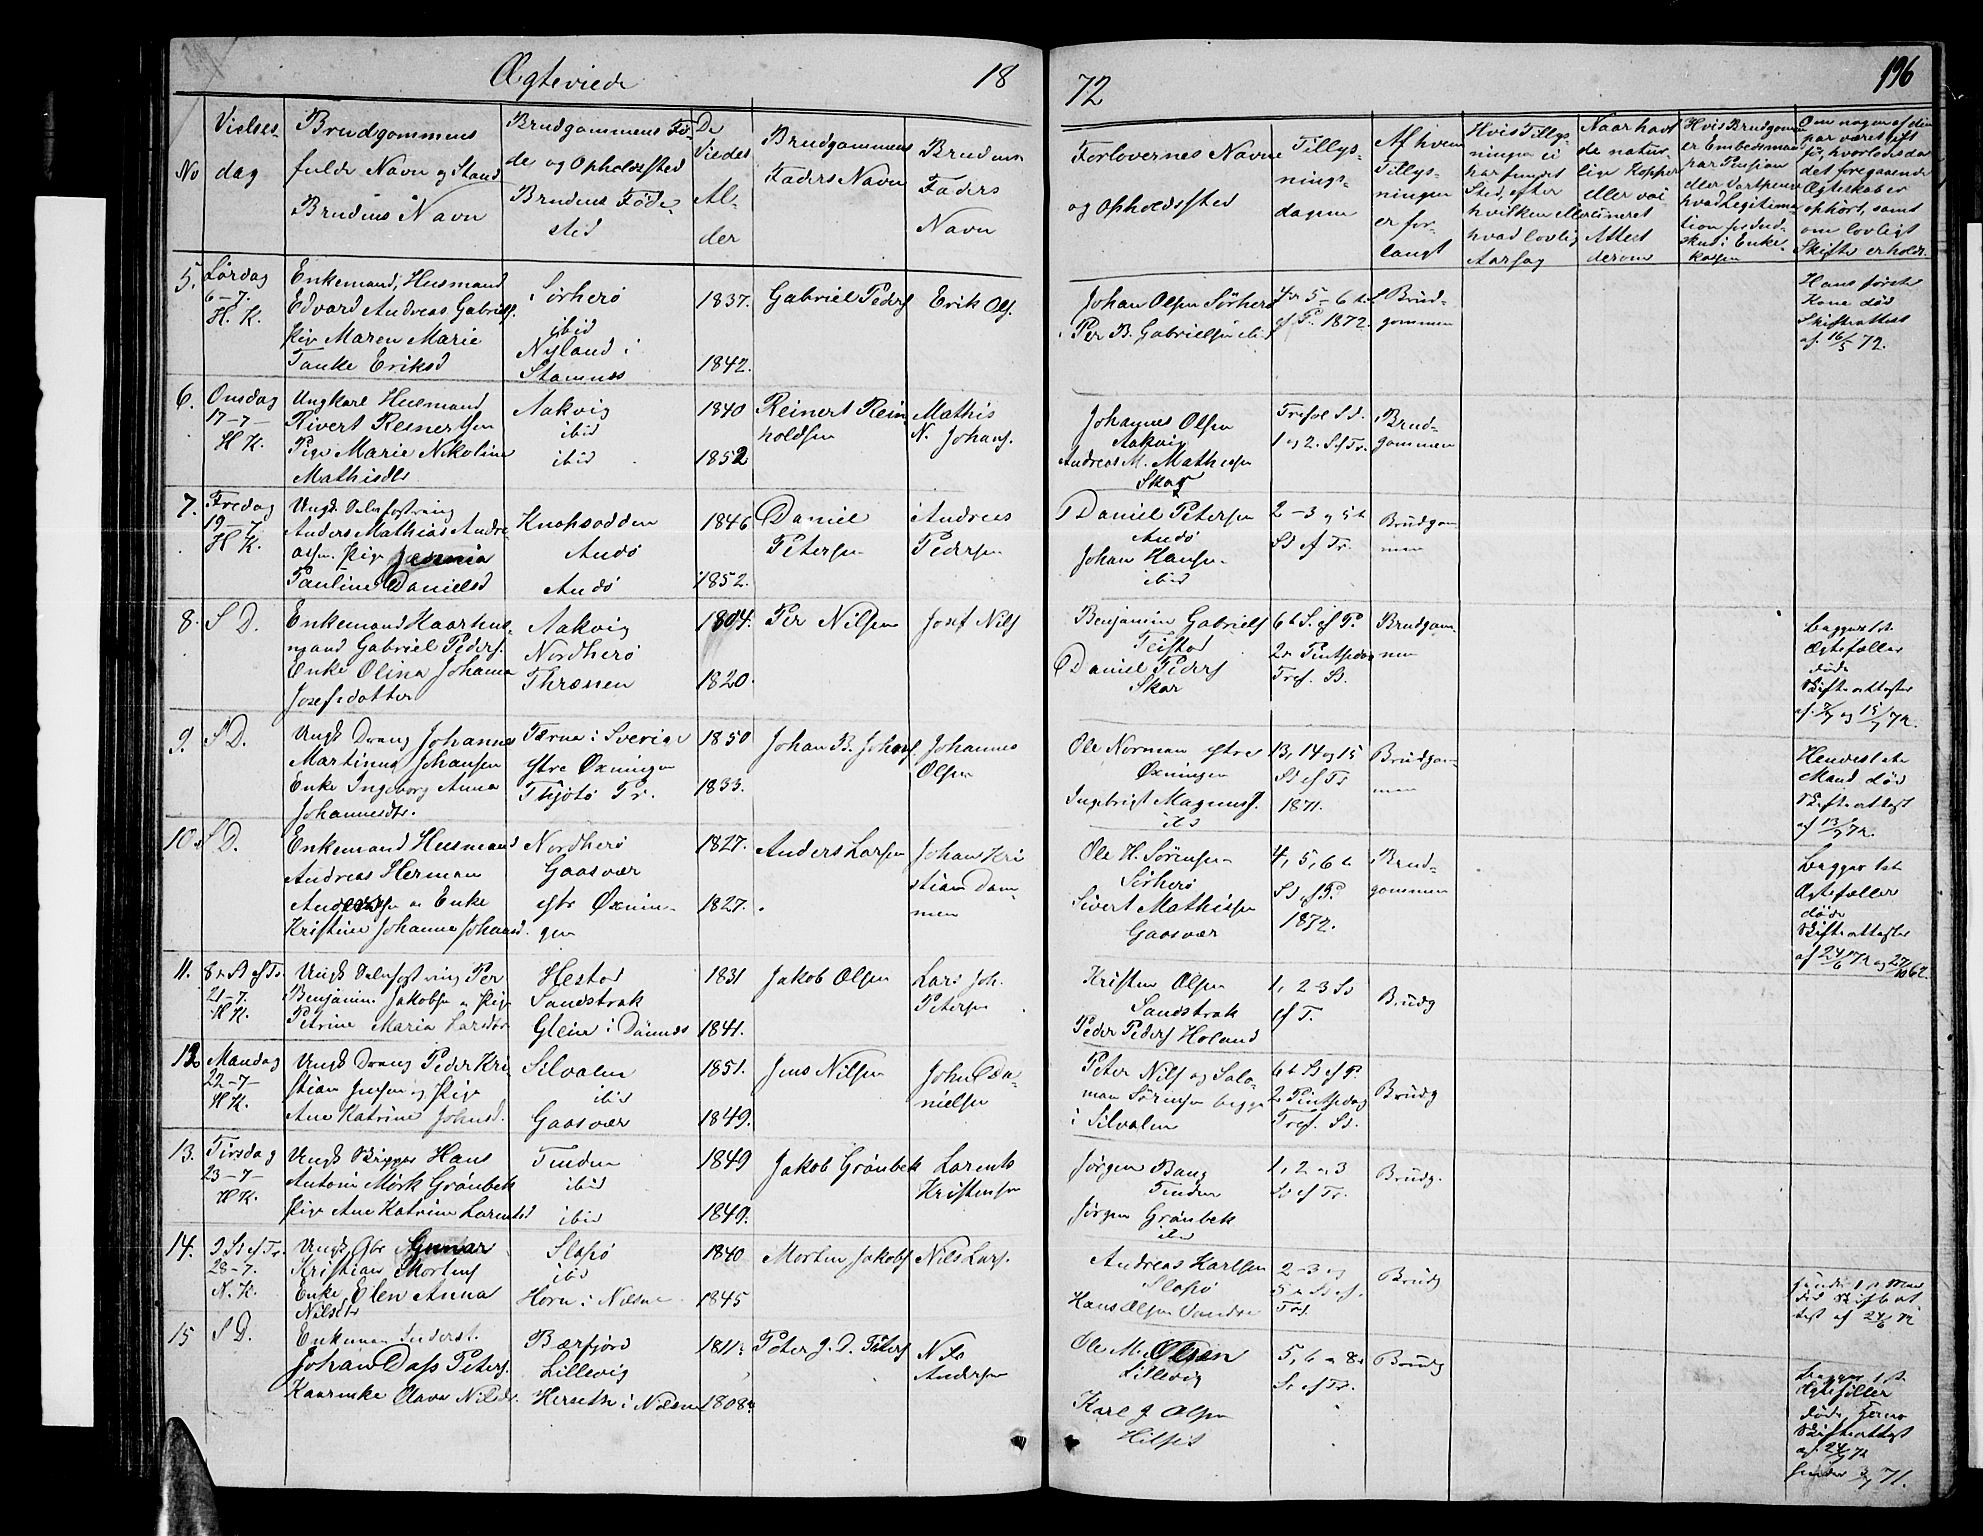 Ægteviede 18
72 196
No
Vielses-
dag
Brudgommens
fulde Navn og Stand
Brudens Navn
Brudgommens Fö-
de og Opholdssted
Brudens Föde-
sted
De
Viedes
Al-
der
Brudgommens
Faders Navn
Brudens
Faders
Navn
Forlovernes Navne
og Opholdssted
Tillys-
nings-
dagene
Af hvem
Tillys-
ningen
er for-
langt
Hvis Tillys-
ningen ei
har fundet
Sted, efter
hvilken eller
hvad lovlig
Aarsag
Naar havt
de natur-
lige Kopper
eller vac-
cineret
Attest
derom
Hvis Brudgommen
er Embedsmand
har Pension
hvad Legitima-
tion for Ind-
skud i Enke-
kassen
Om nogen af dem
har været gift
för, hvorledes da
det foregaaende
Ægteskab er
ophört, samt
om lovligt
Skifte er holdt.
5. Lørdag
6-7.
H. K.
Enkemand, Husmand
Edvard Andreas Gabriels.
Pige Maren Marie
Tanke Eriksd
Sørherø
ibid
Nyland i
Stamnes
1837.
1842.
Gabriel Peders
Erik Ols.
Johan Olsen Sørherø
Per B. Gabrielsen ibid
4de 5 - 6te S
ef P. 1872.
Brud-
gommen
Hans første
Kone død
Skifteattest
af 16/5 72.
6. Onsdag
17-7-
H K.
Ungkarl Husmand
Sivert Reinertsen
Pige Marie Nikoline
Mathisdtr
Aakvig
ibid
ibid
1840
1852
Reinert Rein
holdsen
Mathis
N. Johans.
Johannes Olsen
Aakvig
Andreas M. Mathisen
Skar
Trefol Sd.
1 og 2. S ef Tr.
Brud-
gommen
7. Fredag
19-7.
H K.
Anders Mathias Andre
assen. Pige
Pauline Danielsd
Andø
Andø
1846
1852.
Daniel
Petersen
Andreas
Pedersen
Daniel Petersen
Andø
Johan Hansen
ibid
2-3 og 5te
Sd ef Tr.
Brudgom-
men
8. S D.
Enkemand Kaarhus-
mand Gabriel Peders.
Enke Olina Johanna
Josefsdatter
Aakvig
Nordherø
Thrænen
1804.
1820.
Per Nilsen
Josef Nils
Benjamin Gabriels
Teistod
Daniel Peders
Skar
6te S. ef P.
2den Pintsedag
Tref. S.
Brudgom-
men
begges 1st
Ægtefæller
døde
Skifteattester
9. S D.
Ungk Dreng Johannes
Martinus Johansen
Enke Ingeborg Anna
Johannesdtr.
Tærna i Sverige
ytre Øxningen
Thjøtø Pr.
1850
1833.
Johan B. Johans.
Johannes
Olsen
Ole Norman ytre
Øxningen
Ingebrigt Magnus.
ibd
13, 14 og 15
Sd ef Tr
1871.
Brudgom-
men
Hendes 1ste
Mand død
Skifteattest
af 13/7 72.
10. S D.
Enkemand Husmand
Andreas Herman
Anderssen og Enke
Kristine Johanna Johansd.
Nordherø
Gaasvær
ytr Øxnin-
gen
1827.
1827.
Anders Larsen
Johan Kri
stian Dam
men
Ole H. Sørensen
Sørherø
Sivert Mathissen
Gaasvær
4, 5, 6te
Sd ef P.
1872.
Brud-
gommen
begges 1st
Ægtefæller
døde
Skifteattester
11. 8de S ef Tr.
21-7.
H K.
Benjamin Jakobsen og Pige
Petrine Maria Larsdtr
Hestad
Sandstrak
Glein i Dönnes
1831
1841.
Jakob Olsen
Lars Joh.
Petersen
Kristen Olsen
Sandstrak
Peder Peders Holand
1, 2-3 Sd
ef T.
Brudg
12. Mandag
22-7-
H K.
Ungk Dreng Peder Kri-
stian Jensen og Pige
Ane Katrine Johnsd.
Silvalen
ibid
Gaasvær
1851.
1849.
Jens Nilsen
John Da-
nielsen
Peter Nils og Salo-
mon Sørensen begge
i Silvalen
6te S ef P.
2 Pintsedag
Tref. Sd.
Brudg
13. Tirsdag
23-7-
H K.
Ungk Skipper Hans
Anton Mørk Grønbek
Pige Ane Katrine Larentsd
Tinden
ibid
ibid
1849
1849.
Jakob Grønbek
Larents
Kristensen
Jørgen Bang
Tinden
Jørgen Grønbek
ibd
1, 2 og 3
S ef Tr.
Brudg.
14. 9 S ef Tr.
28-7.
N. K.
Ungk Gbr Gunnar
Kristian Mortens
Enke Elen Anna
Nilsdtr
Slapø
ibd
1840
1845
Morten Jakobs
Nils Lars.
Andreas Karlsen
Slapø
Hans Olsen
2-3 og
Tr.
Brudg
15 S D.
Johan Dass Peters.
Olava Nilsdtr.
Bærfjord
Lillevig
1811.
1808.
Peter J. D. Peters
Nils
Andersen
Ole M. Olsen
Lillevig
Karl J Olsen
5, 6 og 8de
S ef Tr.
Brudg
begges 1st
Ægtefæller
døde
Skifteattest